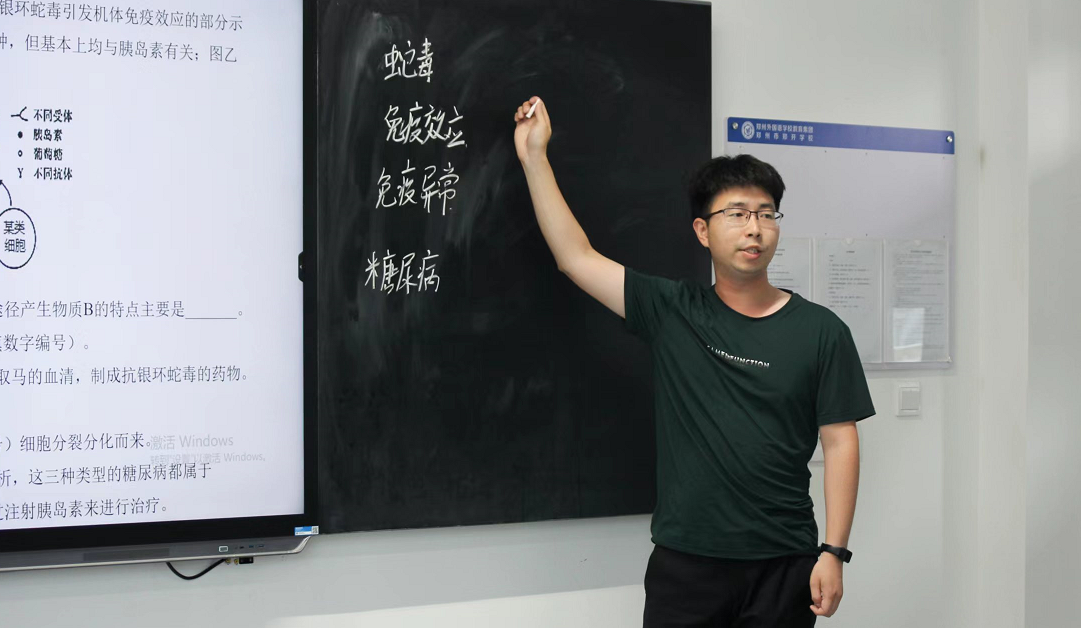 银环蛇毒引发机体免疫效应的部分示
种，但基本上均与胰岛素有关；图乙
不同受体
胰岛素
葡萄糖
Y 不同抗体
某类
细胞
径产生物质B的特点主要是______。
数字编号）。
取马的血清，制成抗银环蛇毒的药物。
）细胞分裂分化而来。
激活 Windows
转到"设置"以激活 Windows。
析，这三种类型的糖尿病都属于
过注射胰岛素来进行治疗。
蛇毒
免疫效应
免疫异常
糖尿病
郑州外国语学校教育集团
郑州市郑开学校